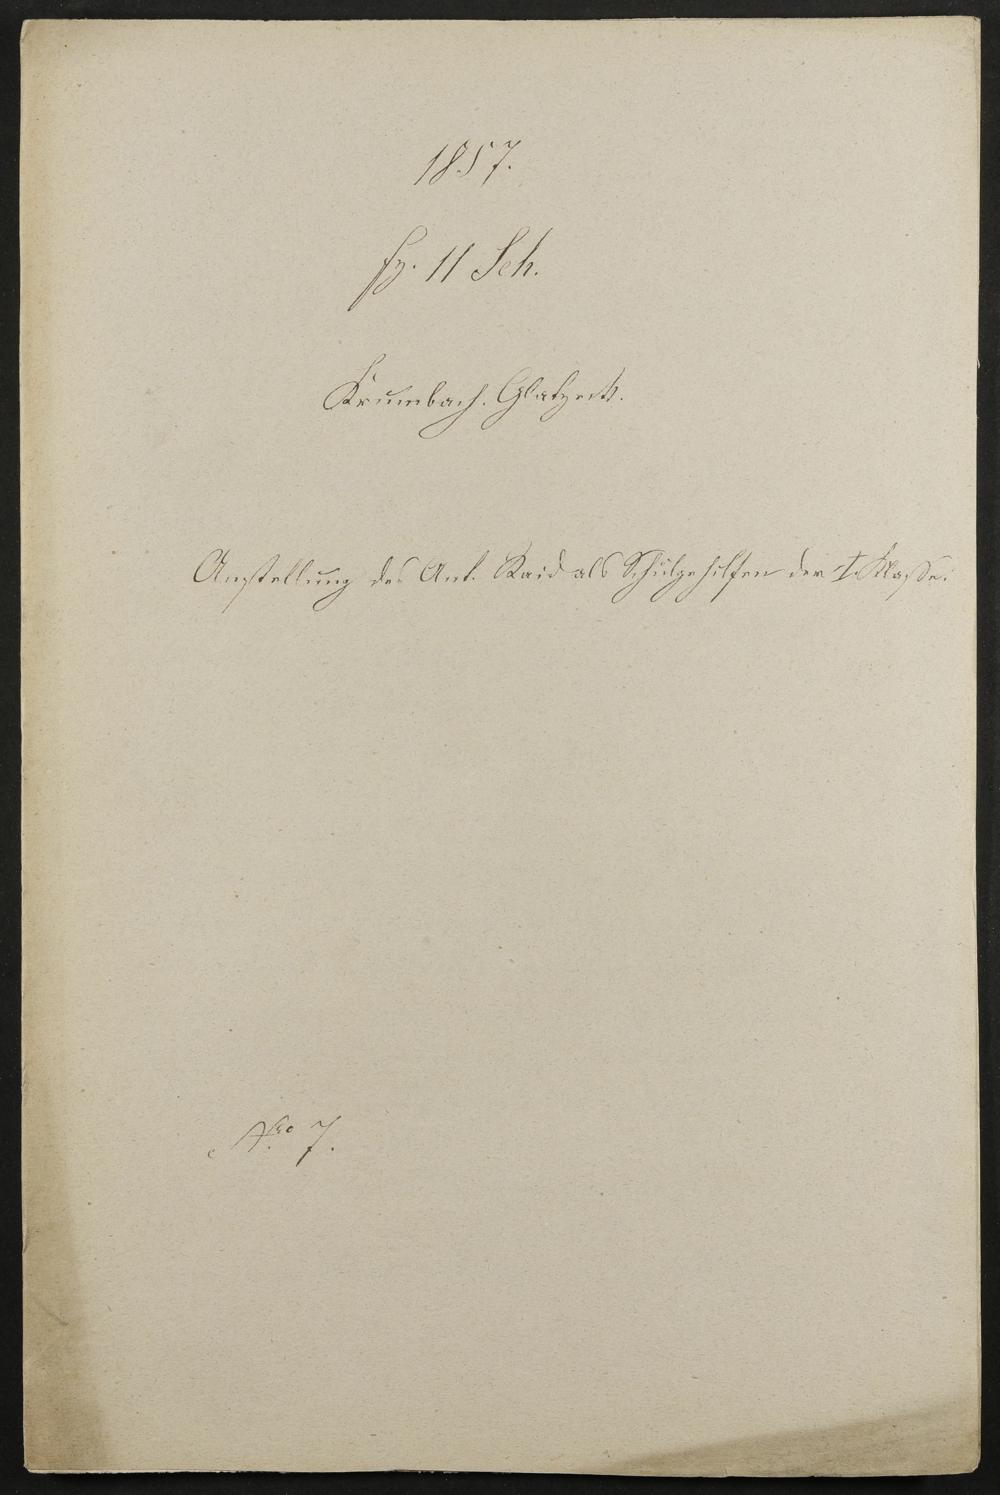 1857.
Fz. 11 Sch.
Krumbach. Glatzreit.
Anstellung des Ant. Raid als Schulgehilfen der I. Klasse.
Nro 7.